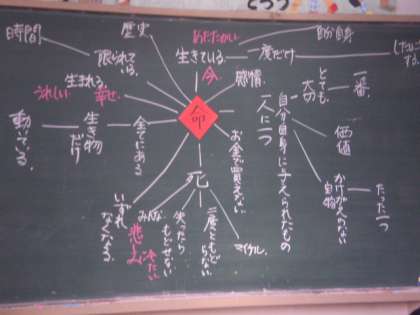 時間
歴史
限られている。
生まれる
うれしい
幸せ
動いている。
生き物だけ
全てにある
あたたかい
生きている
今
一度だけ
自分自身
感情
命
一人に一つ
お金で買えない
自分自身に与えられたもの
とても大切
一番
価値
かけがえのない宝物
たった一つ
死
いずれなくなる。
みんな
悲しみ
冷たい
失ったらもどせない
二度ともどらない
マイケル。